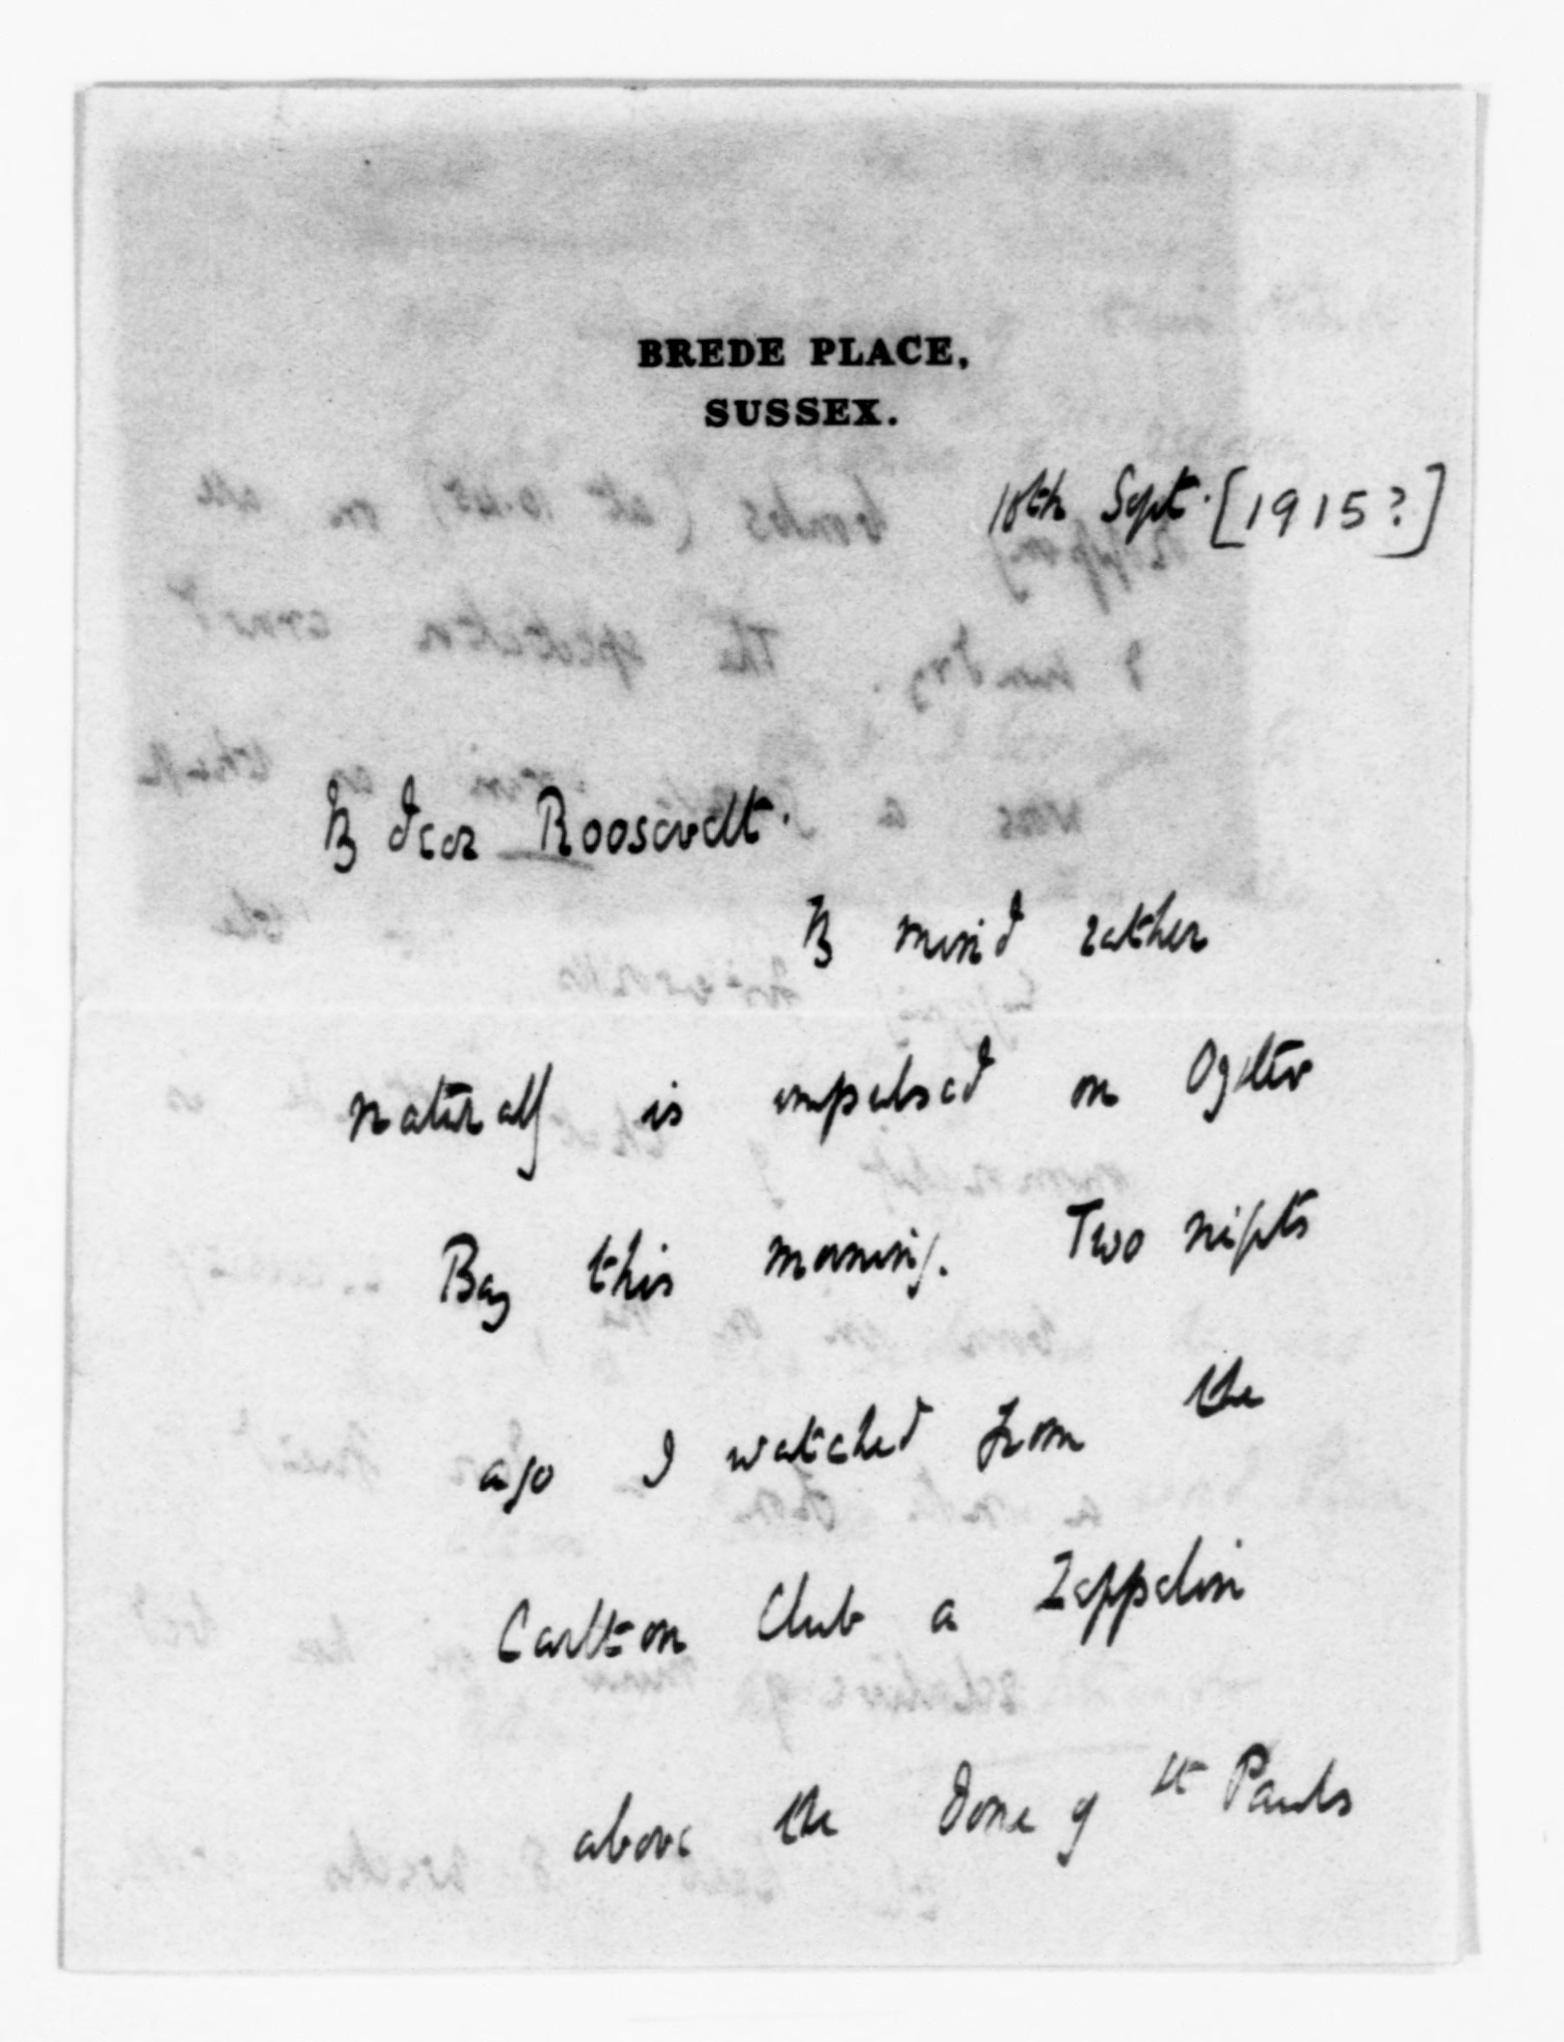 BREDE PLACE,
SUSSEX.
10th Sept. [1915?]
My dear Roosevelt.
My mind rather
naturally is impulsed on Oyster
Bay this morning. Two nights
ago I watched from the
Carlton Club a Zeppelin
above the Dome of St Pauls